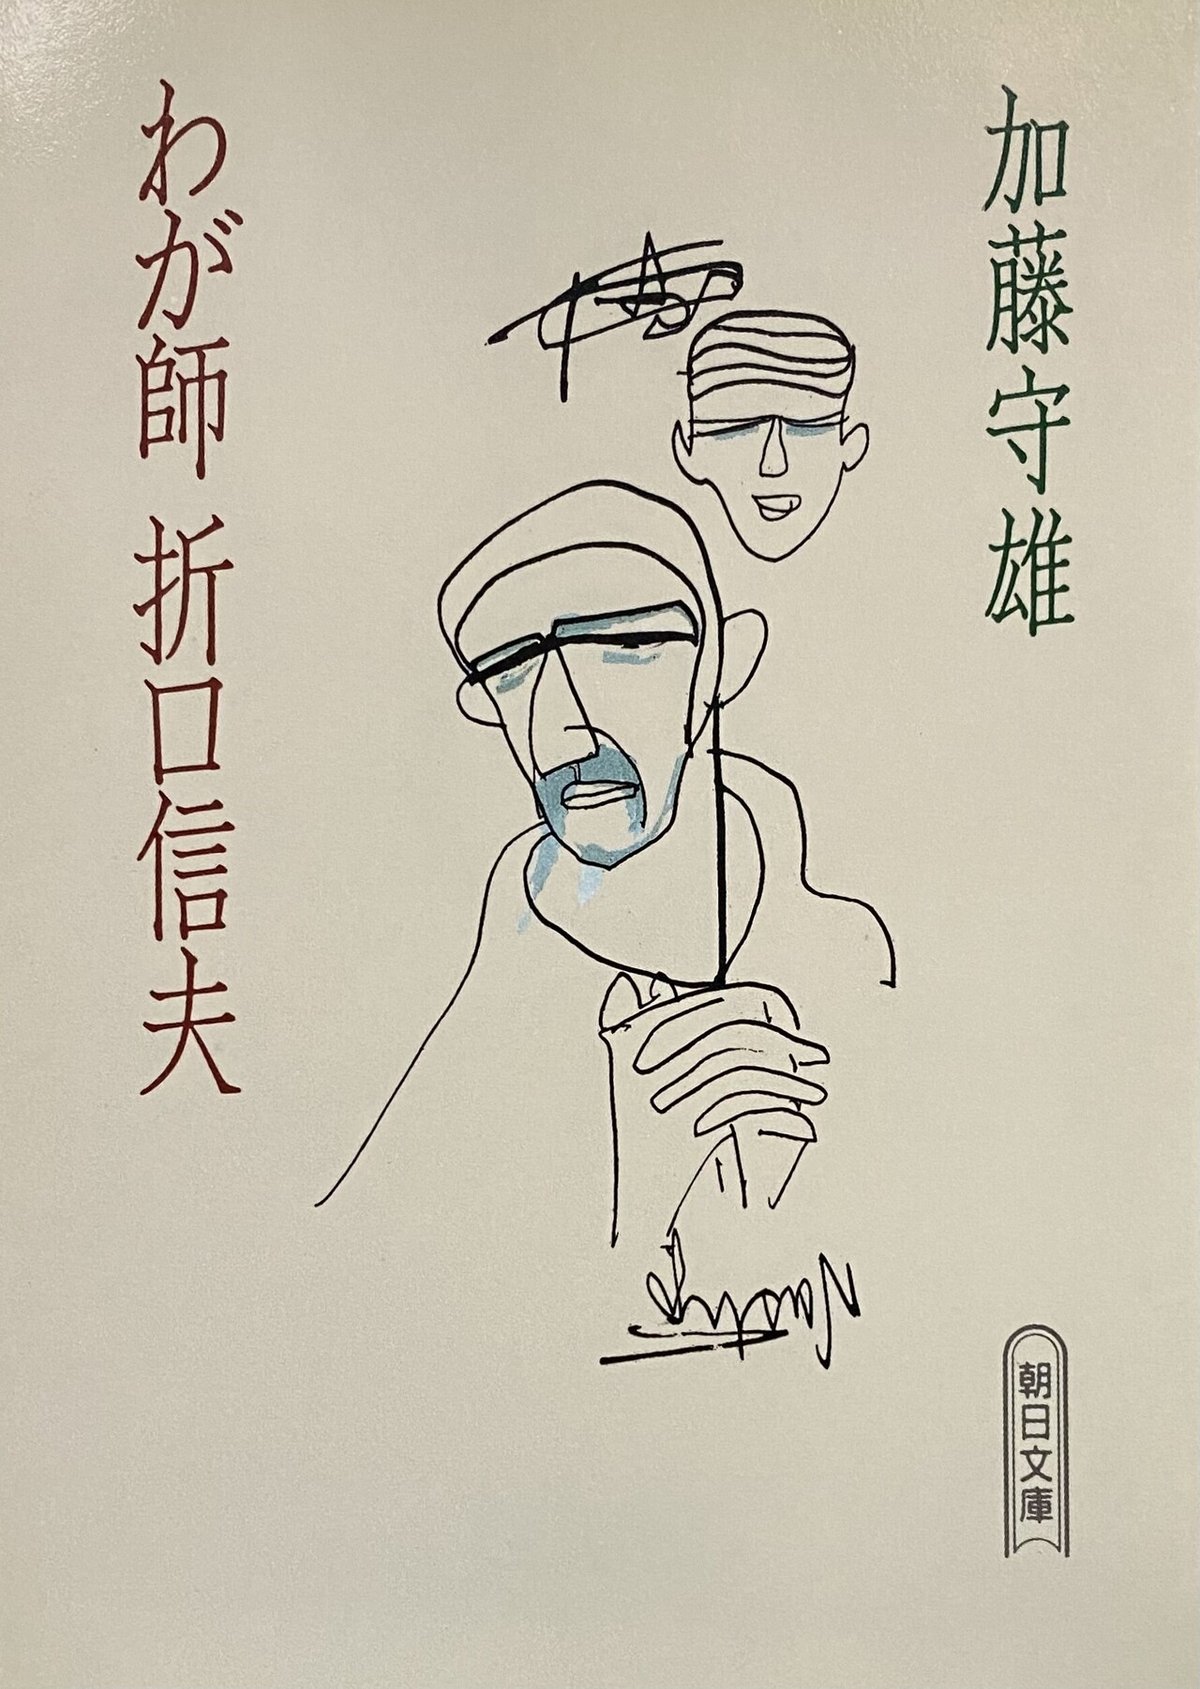 加藤守雄
わが師 折口信夫
朝日文庫